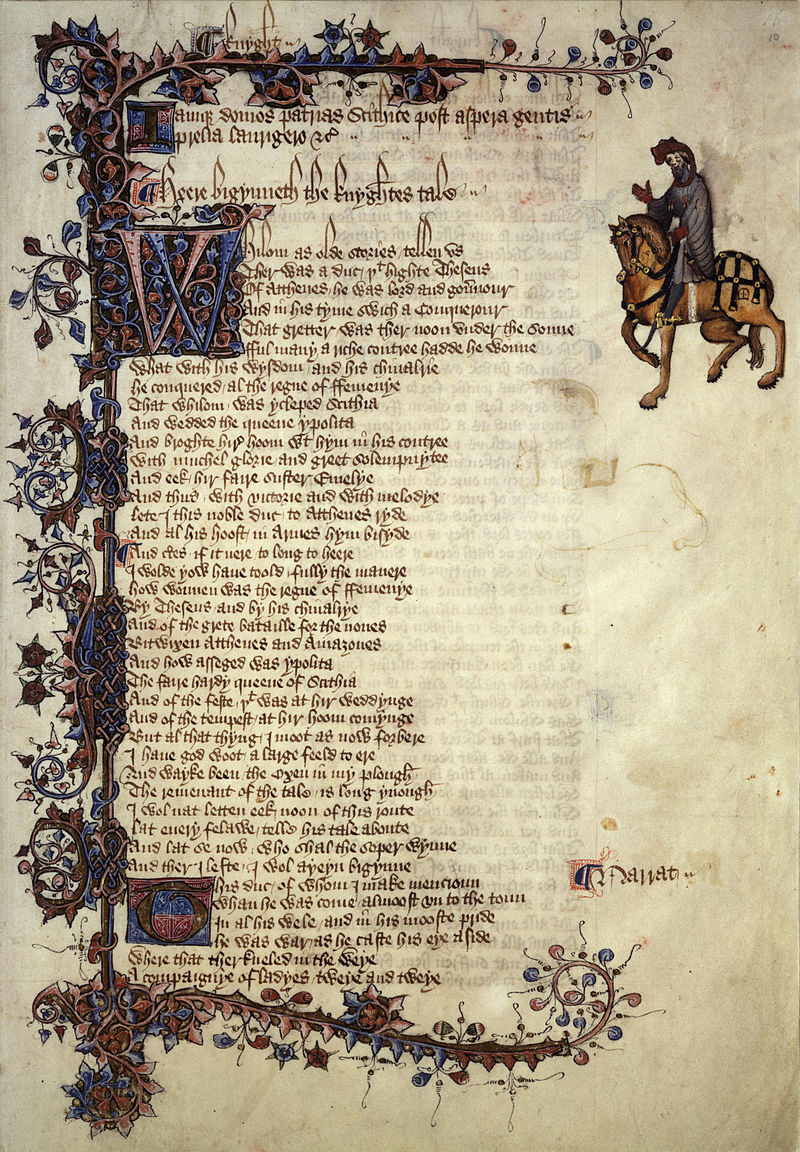 Knyght
10
Iamq; domos patrias Scithice post aspera gentis
prelia laurigero &c̃
Heere bigynneth the knyghtes tale
Whilom as olde stories tellen vs
Ther was a duc þͭ highte Theseus
Of Atthenes he was lord and gou̅nour
And in his tyme swich a Conquerour
That gretter was ther noon vnder the sonne
fful many a riche contree hadde he wonne
What with his wysdom and his chiualrie
he conquered al the regne of ffemenye
That whilom was ycleped Scithia
And wedded the queene ypolita
And broghte hir̉ hoom wͭ hym in his contree
With muchel glorie and greet solempnytee
And eek hir faire suster Emelye
And thus with victorie and with melodye
lete I this noble duc to Atthenes ryde
And al his hoost in Armes hym bisyde
And certes if it nere to long to heere
I wolde yow haue toold fully the manere
how wonnen was the regne of ffemenye
By Theseus and by his chiualrye
And of the grete bataille for the nones
Bitwixen Atthenes and Amazones
And how asseged was ypolita
The faire hardy queene of Scithia
And of the feste þͭ was at hir weddynge
And of the tempest at hir hoom comynge
But al that thyng I moot as now forbere
I haue god woot a large feeld to ere
And wayke been the Oxen in my plough
The remenant of the tale is long ynough
I wol nat letten eek noon of this route
lat euery felawe telle his tale aboute
And lat se now who shal the soper wynne
And ther I lefte I wol ayeyn bigynne
Narrat
This duc of whom I make mencioun
Whan he was come almoost vn to the toun
In al his wele and in his mooste pride
he was war as he caste his eye aside
Where that ther kneled in the weye
A compaignye of ladyes tweye and tweye